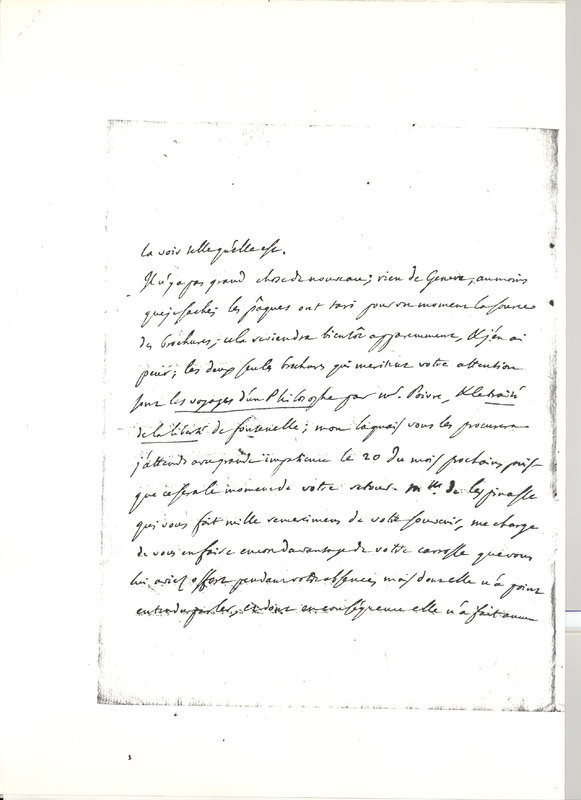 la voir telle qu'elle est.
Il n'y a pas grand chose de nouveau; rien de Geneve, au moins
que je sache; les pâques ont tari pour un moment la source
des brochures; cela reviendra bientôt apparemment, & j'en ai
peur; les deux seules brochures qui meritent votre attention
sont les voyages d'un Philosophe par mr. Poivre, & le traité
de la liberté de fontenelle; mon laquais vous les procurera
j'attends avec grande impatience le 20 du mois prochain, puis
que ce sera le moment de votre retour. mlle de lespinasse
qui vous fait mille remercimens de votre souvenir, me charge
de vous en faire encore davantage de votre carrosse que vous
lui aviez offert pendant votre absence, mais dont elle n'a point
entendu parler, et dont en conséquence elle n'a fait aucun